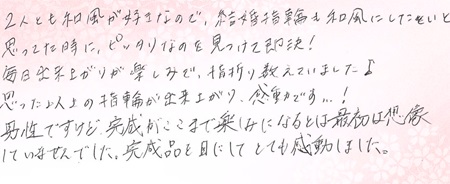 2人とも和風が好きなので、結婚指輪も和風にしたいと
思ってた時に、ピッタリなのを見つけて即決！
毎日出来上がりが楽しみで、指折り数えていました♪
思った以上の指輪が出来上がり、感動です…！
男性ですけど、完成がここまで楽しみになるとは最初は想像
していませんでした。完成品を目にしてとても感動しました。